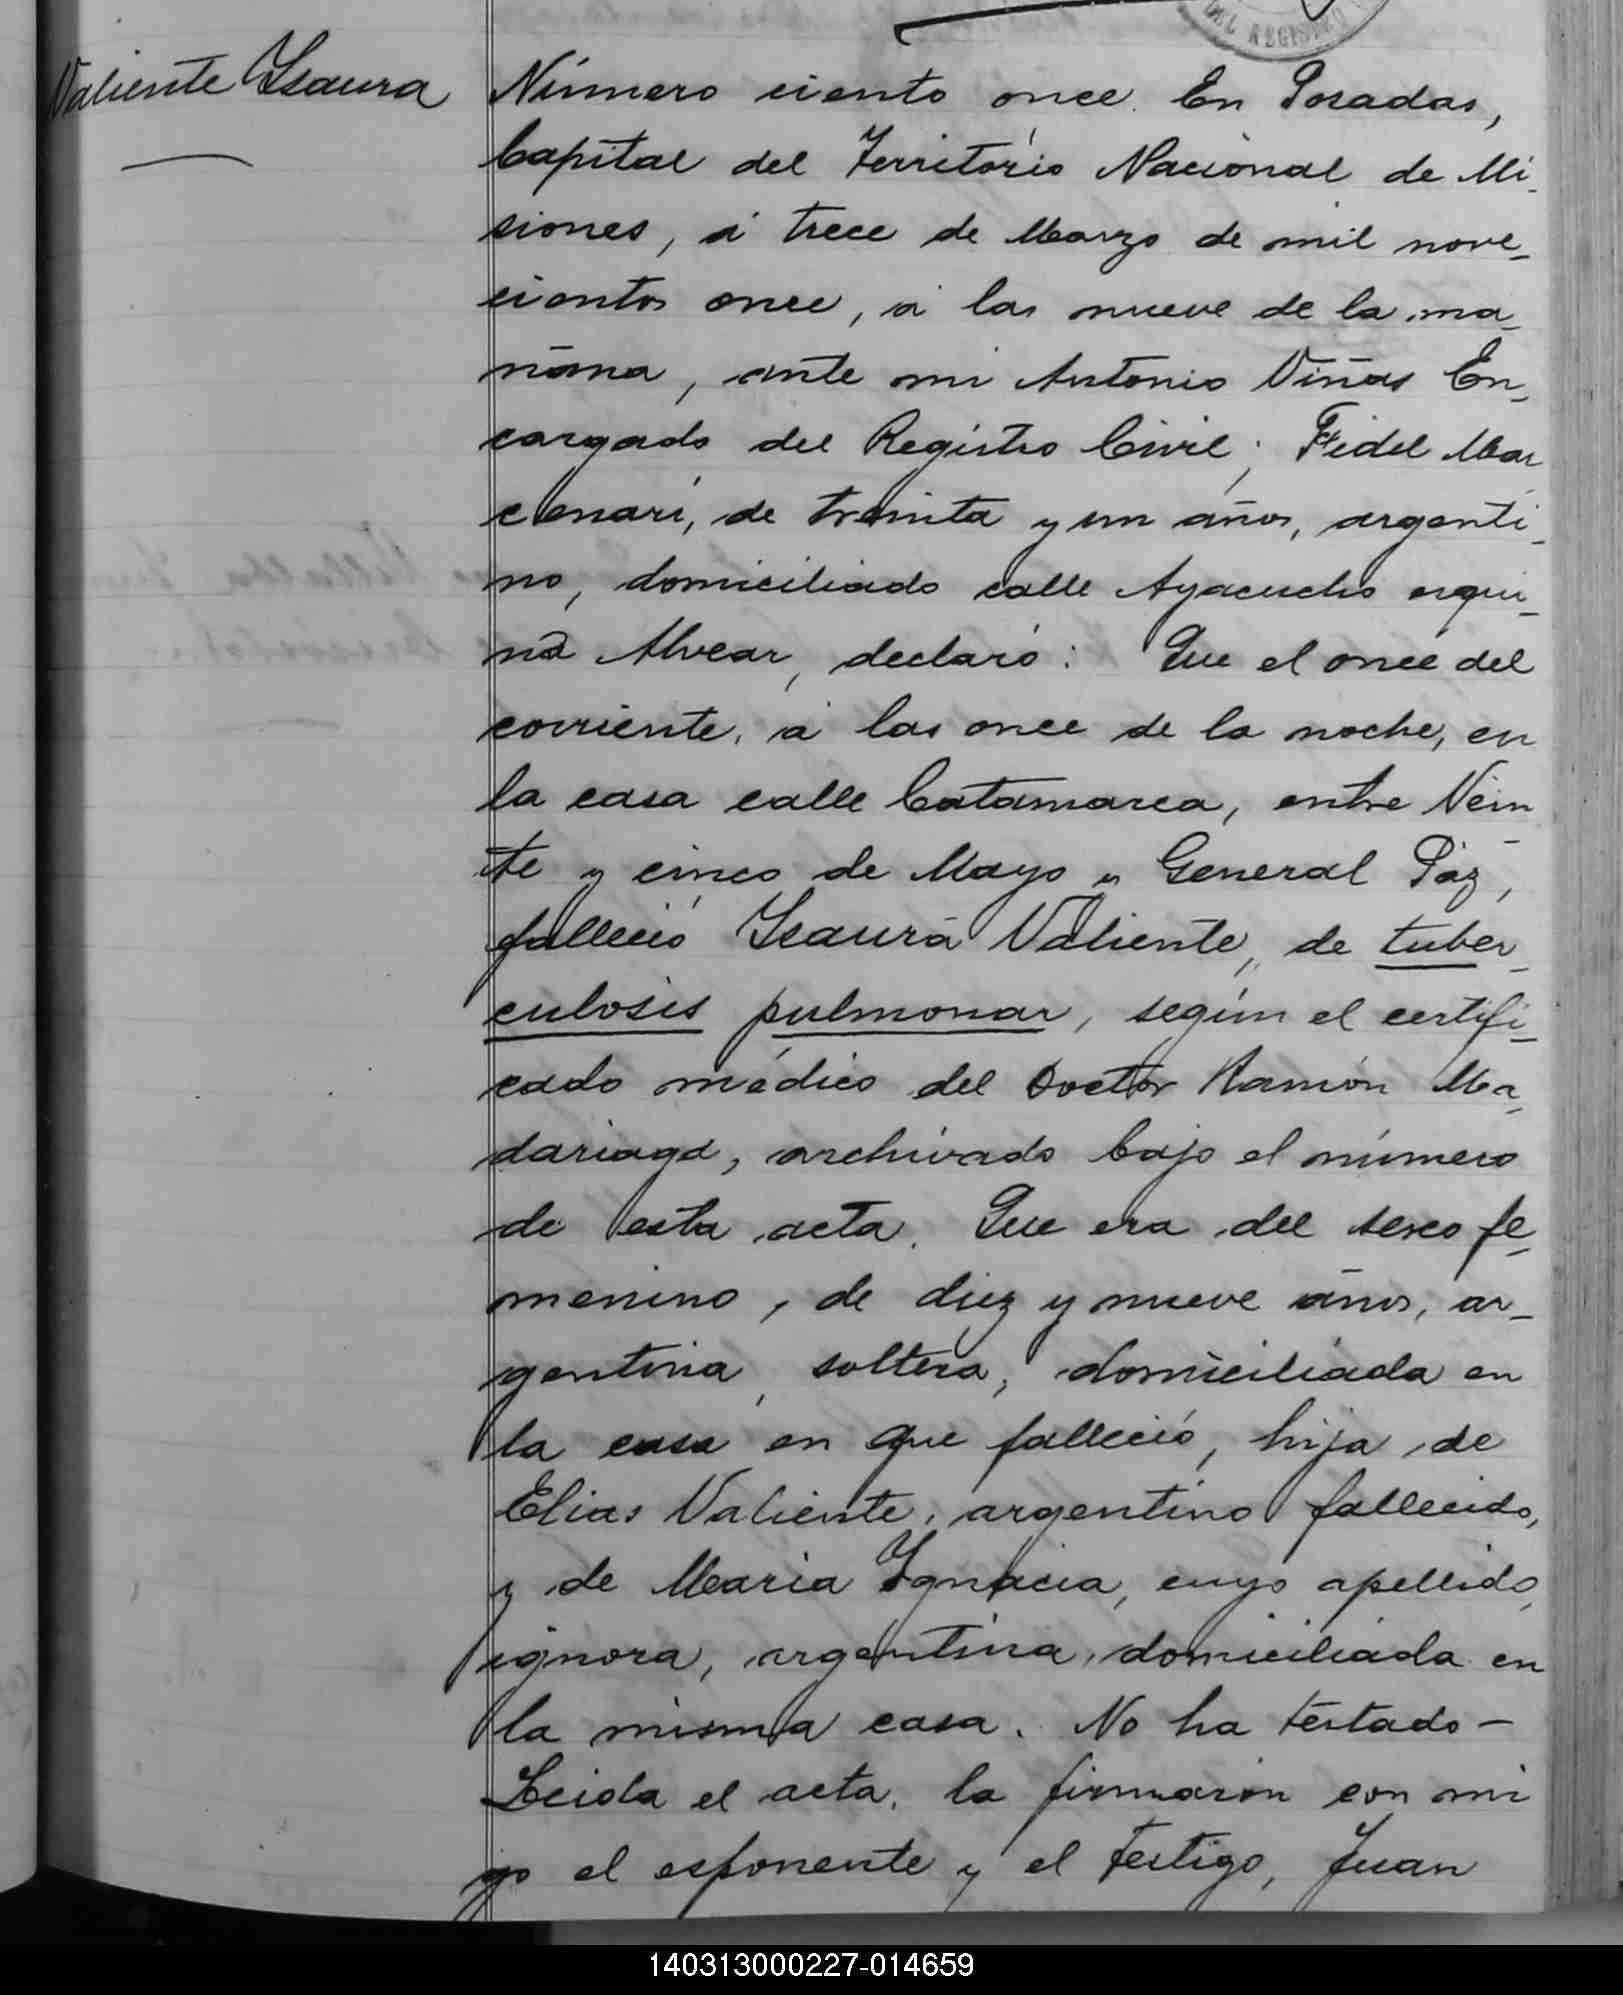 DEL REGISTRO
Valiente Ysaura
Número ciento once. En Posadas,
Capital del Territorio Nacional de Mi-
siones, á trece de Marzo de mil nove-
cientos once, á las nueve de la ma-
ñana, ante mi Antonio Viñas En-
cargado del Registro Civil; Fidel Mar
cenari, de treinta y un años, argenti-
no, domiciliado calle Ayacucho esqui-
na Alvear, declaró: Que el once del
corriente, á las once de la noche, en
la casa calle Catamarca, entre Vein
te y cinco de Mayo y General Paz,
falleció Ysaura Valiente, de tuber-
culosis pulmonar, según el certifi-
cado médico del Doctor Ramón Ma-
dariaga, archivado bajo el número
de esta acta. Que era del sexo fe-
menino, de diez y nueve años, ar-
gentina, soltera, domiciliada en
la casa en que falleció, hija de
Elias Valiente, argentino fallecido,
y de Maria Ygnacia, cuyo apellido
ignora, argentina, domiciliada en
la misma casa. No ha testado-
Leida el acta, la firmaron con mi
go el esponente y el testigo, Juan
140313000227-014659